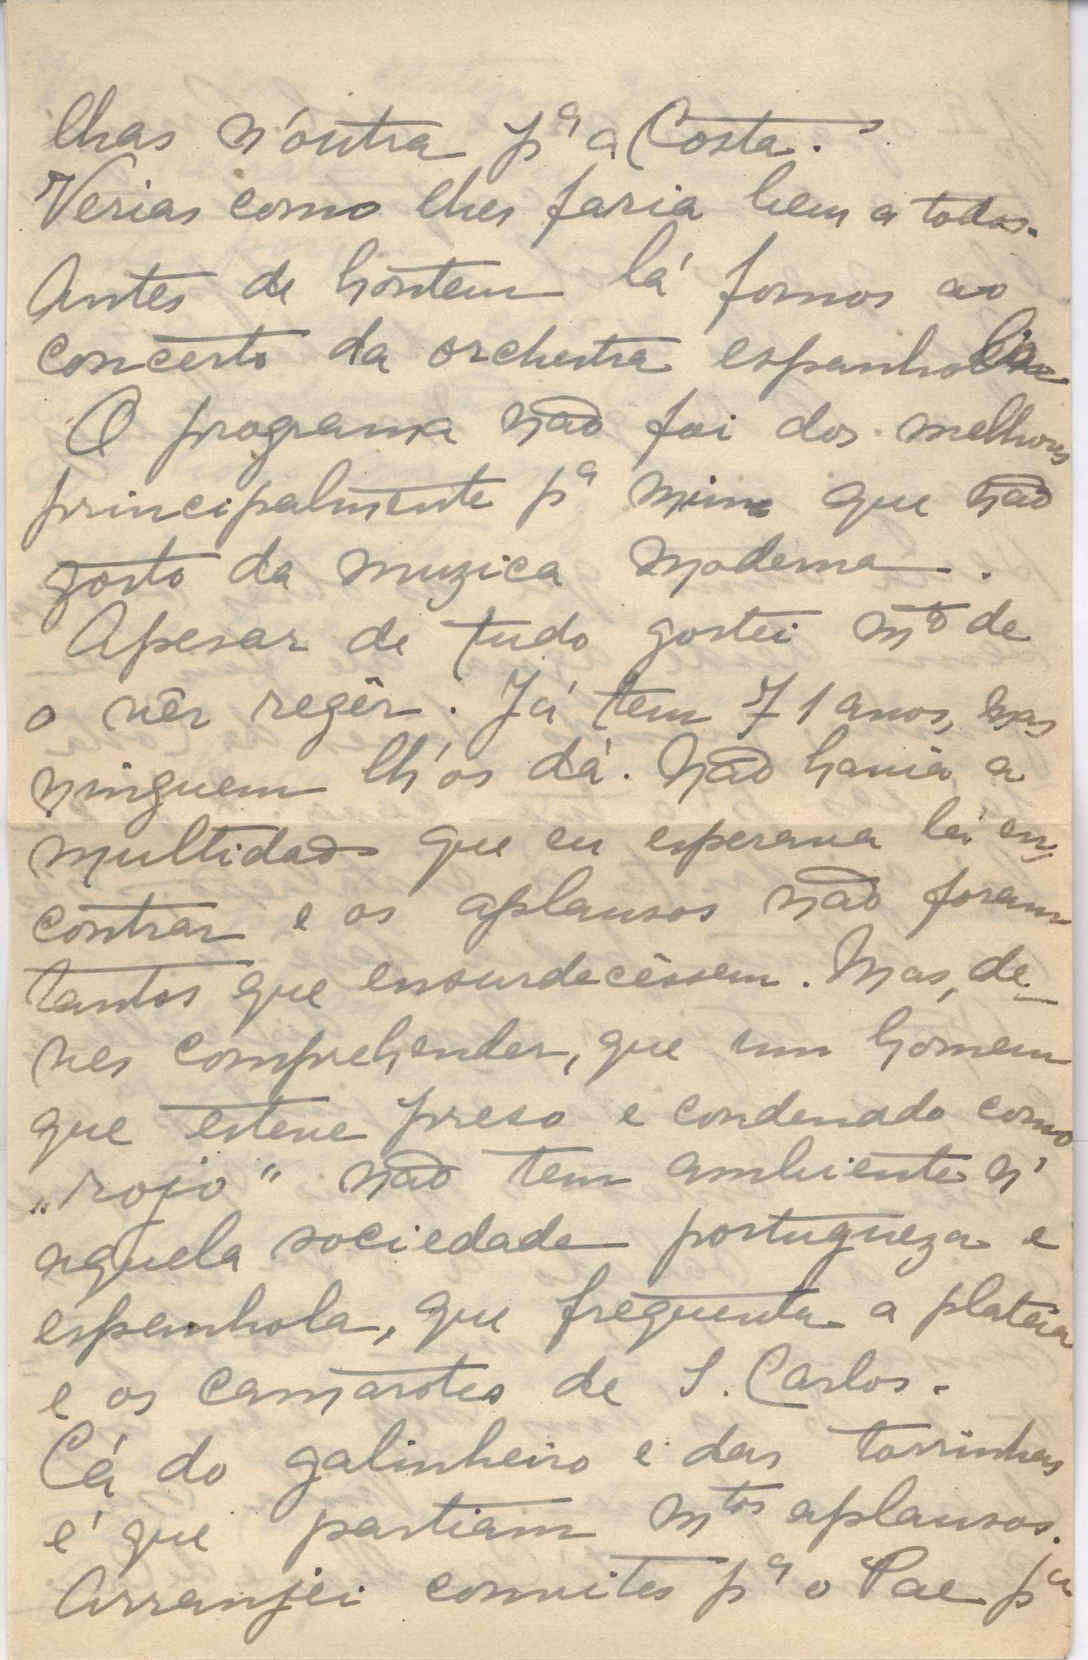 lhas n'outra pª a Costa.
Verias como lhes faria bem a todos.
Antes de hontem lá fomos ao
concerto da orchestra espanhola
O programa não foi dos melhores
principalmente pª mim que não
gosto da muzica moderna.
Apesar de tudo gostei mtº de
o vêr regêr. Já tem 71 anos, mas
ninguem lh'os dá. Não havia a
multidão que eu esperava lá en-
contrar e os aplausos não foram
tantos que ensurdecêssem. Mas, de-
ves comprehender, que um homem
que esteve preso e condenado como
"rojo" não tem ambiente n'
aquela sociedade portugueza e
espanhola, que frequenta a plateia
e os camarotes de S. Carlos.
Cá do galinheiro e das torrinhas
é que partiam mtos aplausos.
Arranjei convites pª o Pae pª